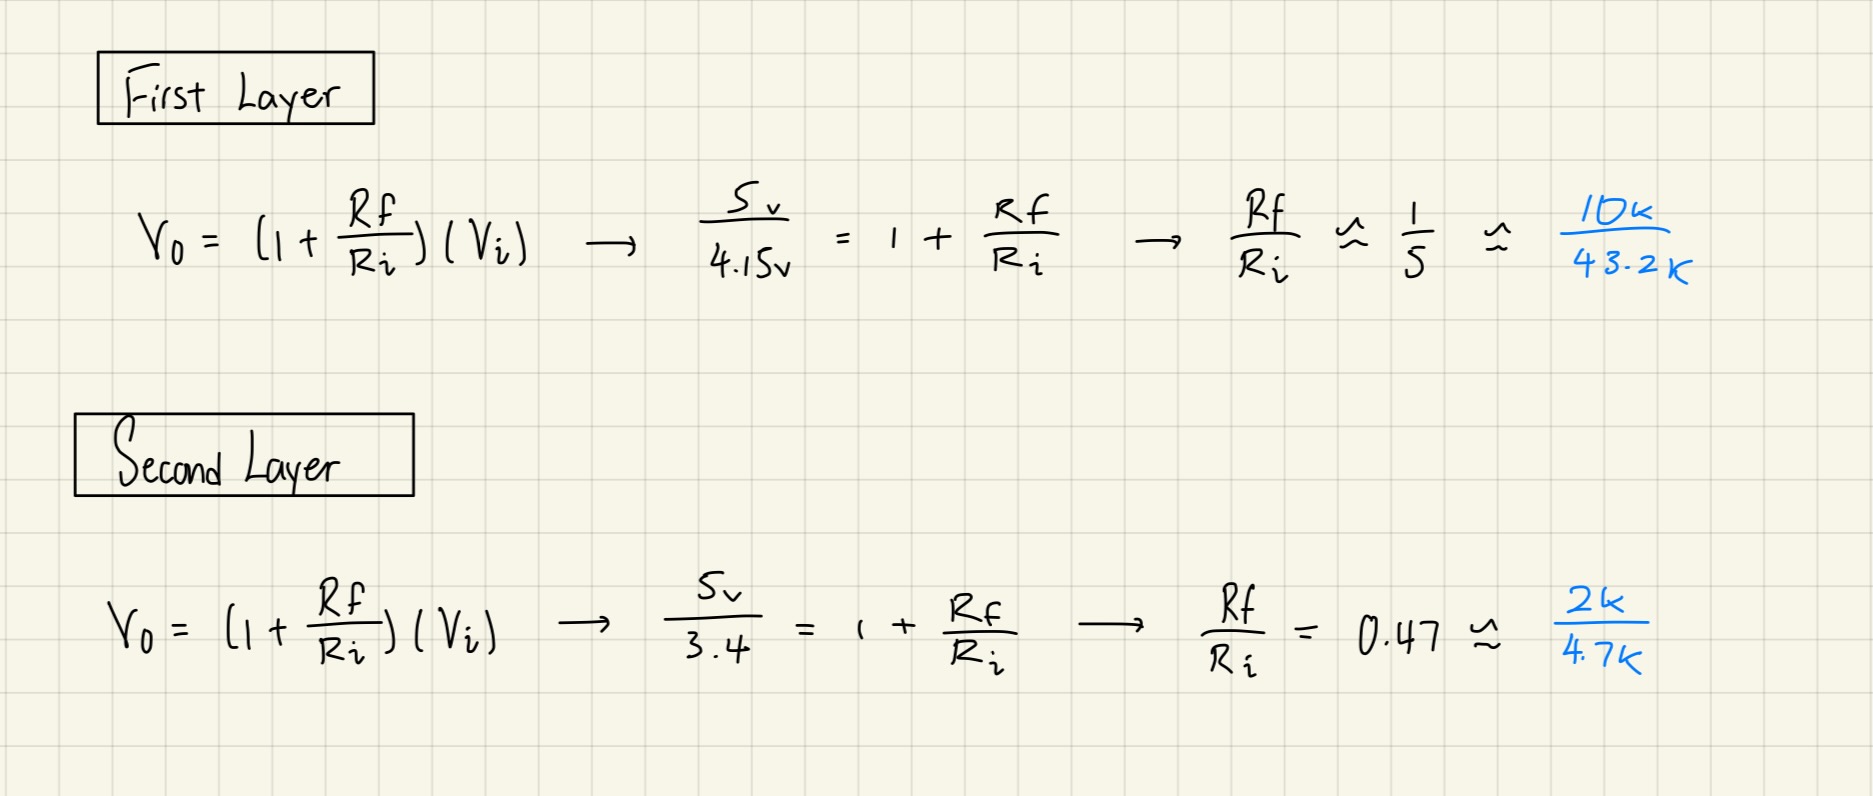 First Layer
Vo = (1 + Rf/Ri)(Vi) → 5v/4.15v = 1 + Rf/Ri → Rf/Ri ≈ 1/5 ≈ 10k/43.2k
Second Layer
Vo = (1 + Rf/Ri)(Vi) → 5v/3.4 = 1 + Rf/Ri → Rf/Ri = 0.47 ≈ 2k/4.7k